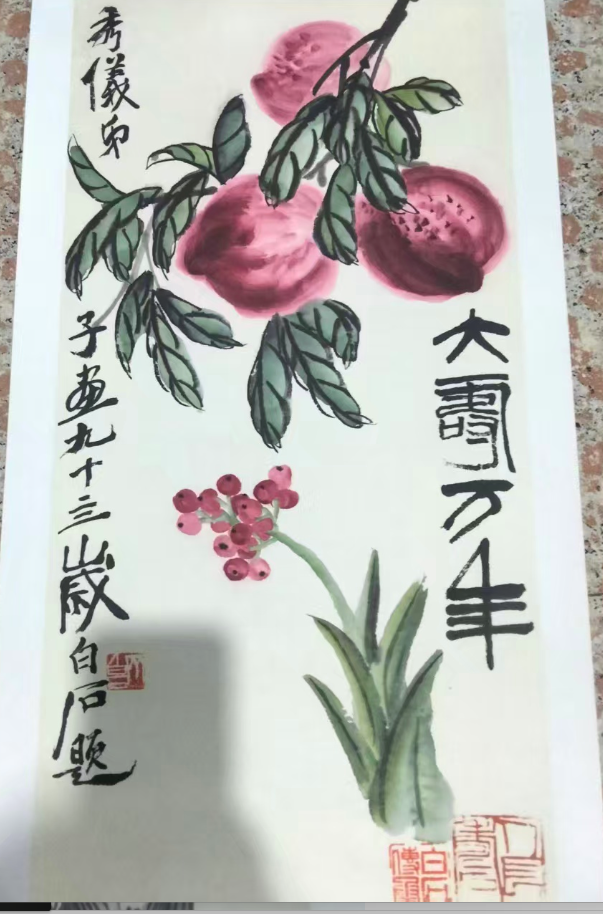 大壽万年
秀儀弟
子畫九十三歲白石題